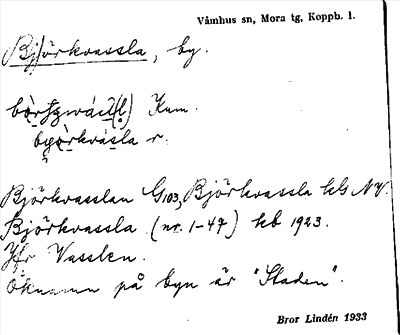 Våmhus sn, Mora tg, Koppb. l.
Björkvassla, by.
Kum.
r.
Björkvasslan G103, Björkvassla hls NV.
Björkvassla (nr. 1-47) kb 1923.
Jfr Vasslen.
Öknamn på byn är "Staden".
Bror Lindén 1933